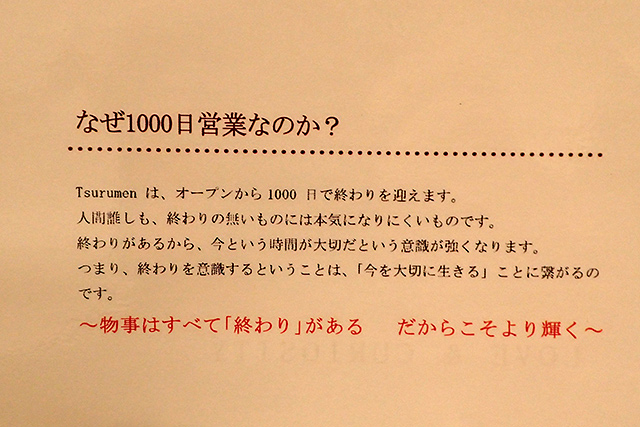 なぜ1000日営業なのか？
Tsurumen は、オープンから1000 日で終わりを迎えます。
人間誰しも、終わりの無いものには本気になりにくいものです。
終わりがあるから、今という時間が大切だという意識が強くなります。
つまり、終わりを意識するということは、「今を大切に生きる」ことに繋がるの
です。
～物事はすべて「終わり」がある　だからこそより輝く～